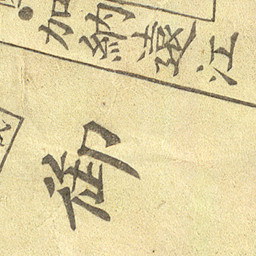 加納遠江
御